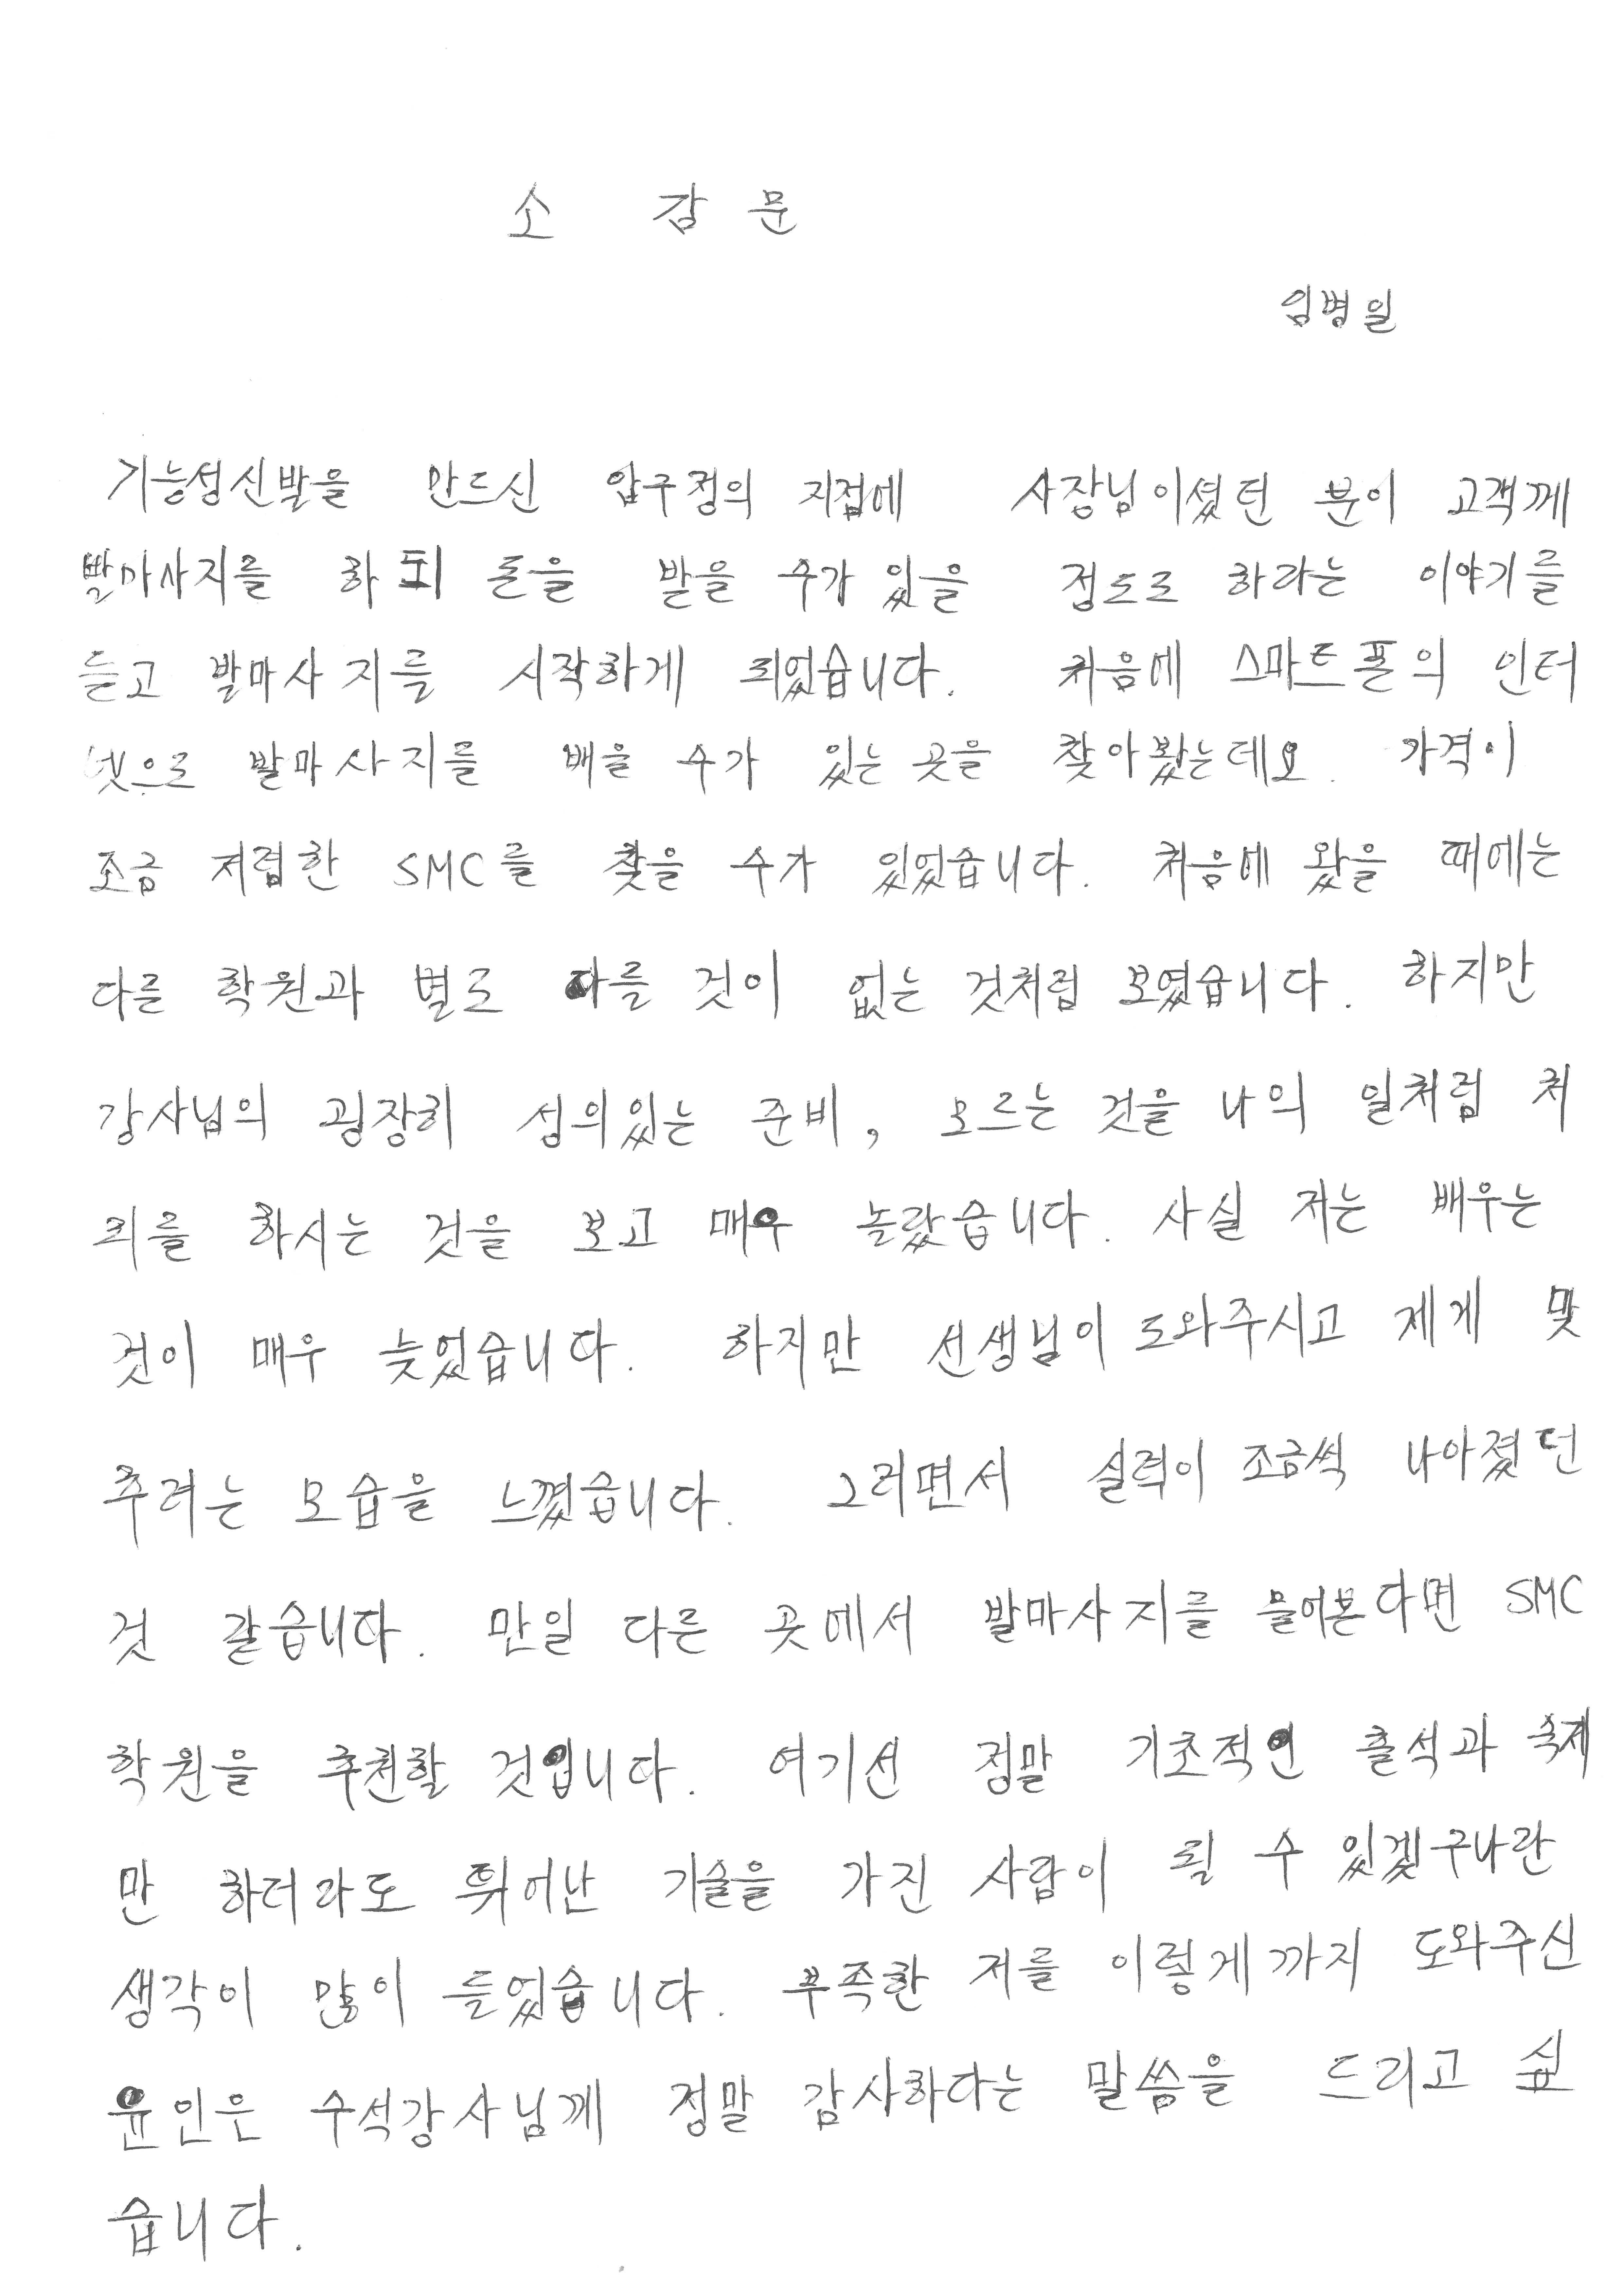 소 감 문
임병일
기능성신발을 만드신 압구정의 지점에 사장님이셨던 분이 고객께
발마사지를 하되 돈을 받을 수가 있을 정도로 하라는 이야기를
듣고 발마사지를 시작하게 되었습니다. 처음에 스마트폰의 인터
넷으로 발마사지를 배울 수가 있는 곳을 찾아봤는데요. 가격이
조금 저렴한 SMC를 찾을 수가 있었습니다. 처음에 왔을 때에는
다른 학원과 별로 다를 것이 없는 것처럼 보였습니다. 하지만
강사님의 굉장히 성의있는 준비, 모르는 것을 나의 일처럼 처
리를 하시는 것을 보고 매우 놀랐습니다. 사실 저는 배우는
것이 매우 늦었습니다. 하지만 선생님이 도와주시고 제게 맞
추려는 모습을 느꼈습니다. 그러면서 실력이 조금씩 나아졌던
것 같습니다. 만일 다른 곳에서 발마사지를 물어본다면 SMC
학원을 추천할 것입니다. 여기선 정말 기초적인 출석과 숙제
만 하더라도 뛰어난 기술을 가진 사람이 될 수 있겠구나란
생각이 많이 들었습니다. 부족한 저를 이렇게까지 도와주신
윤인은 수석강사님께 정말 감사하다는 말씀을 드리고 싶
습니다.